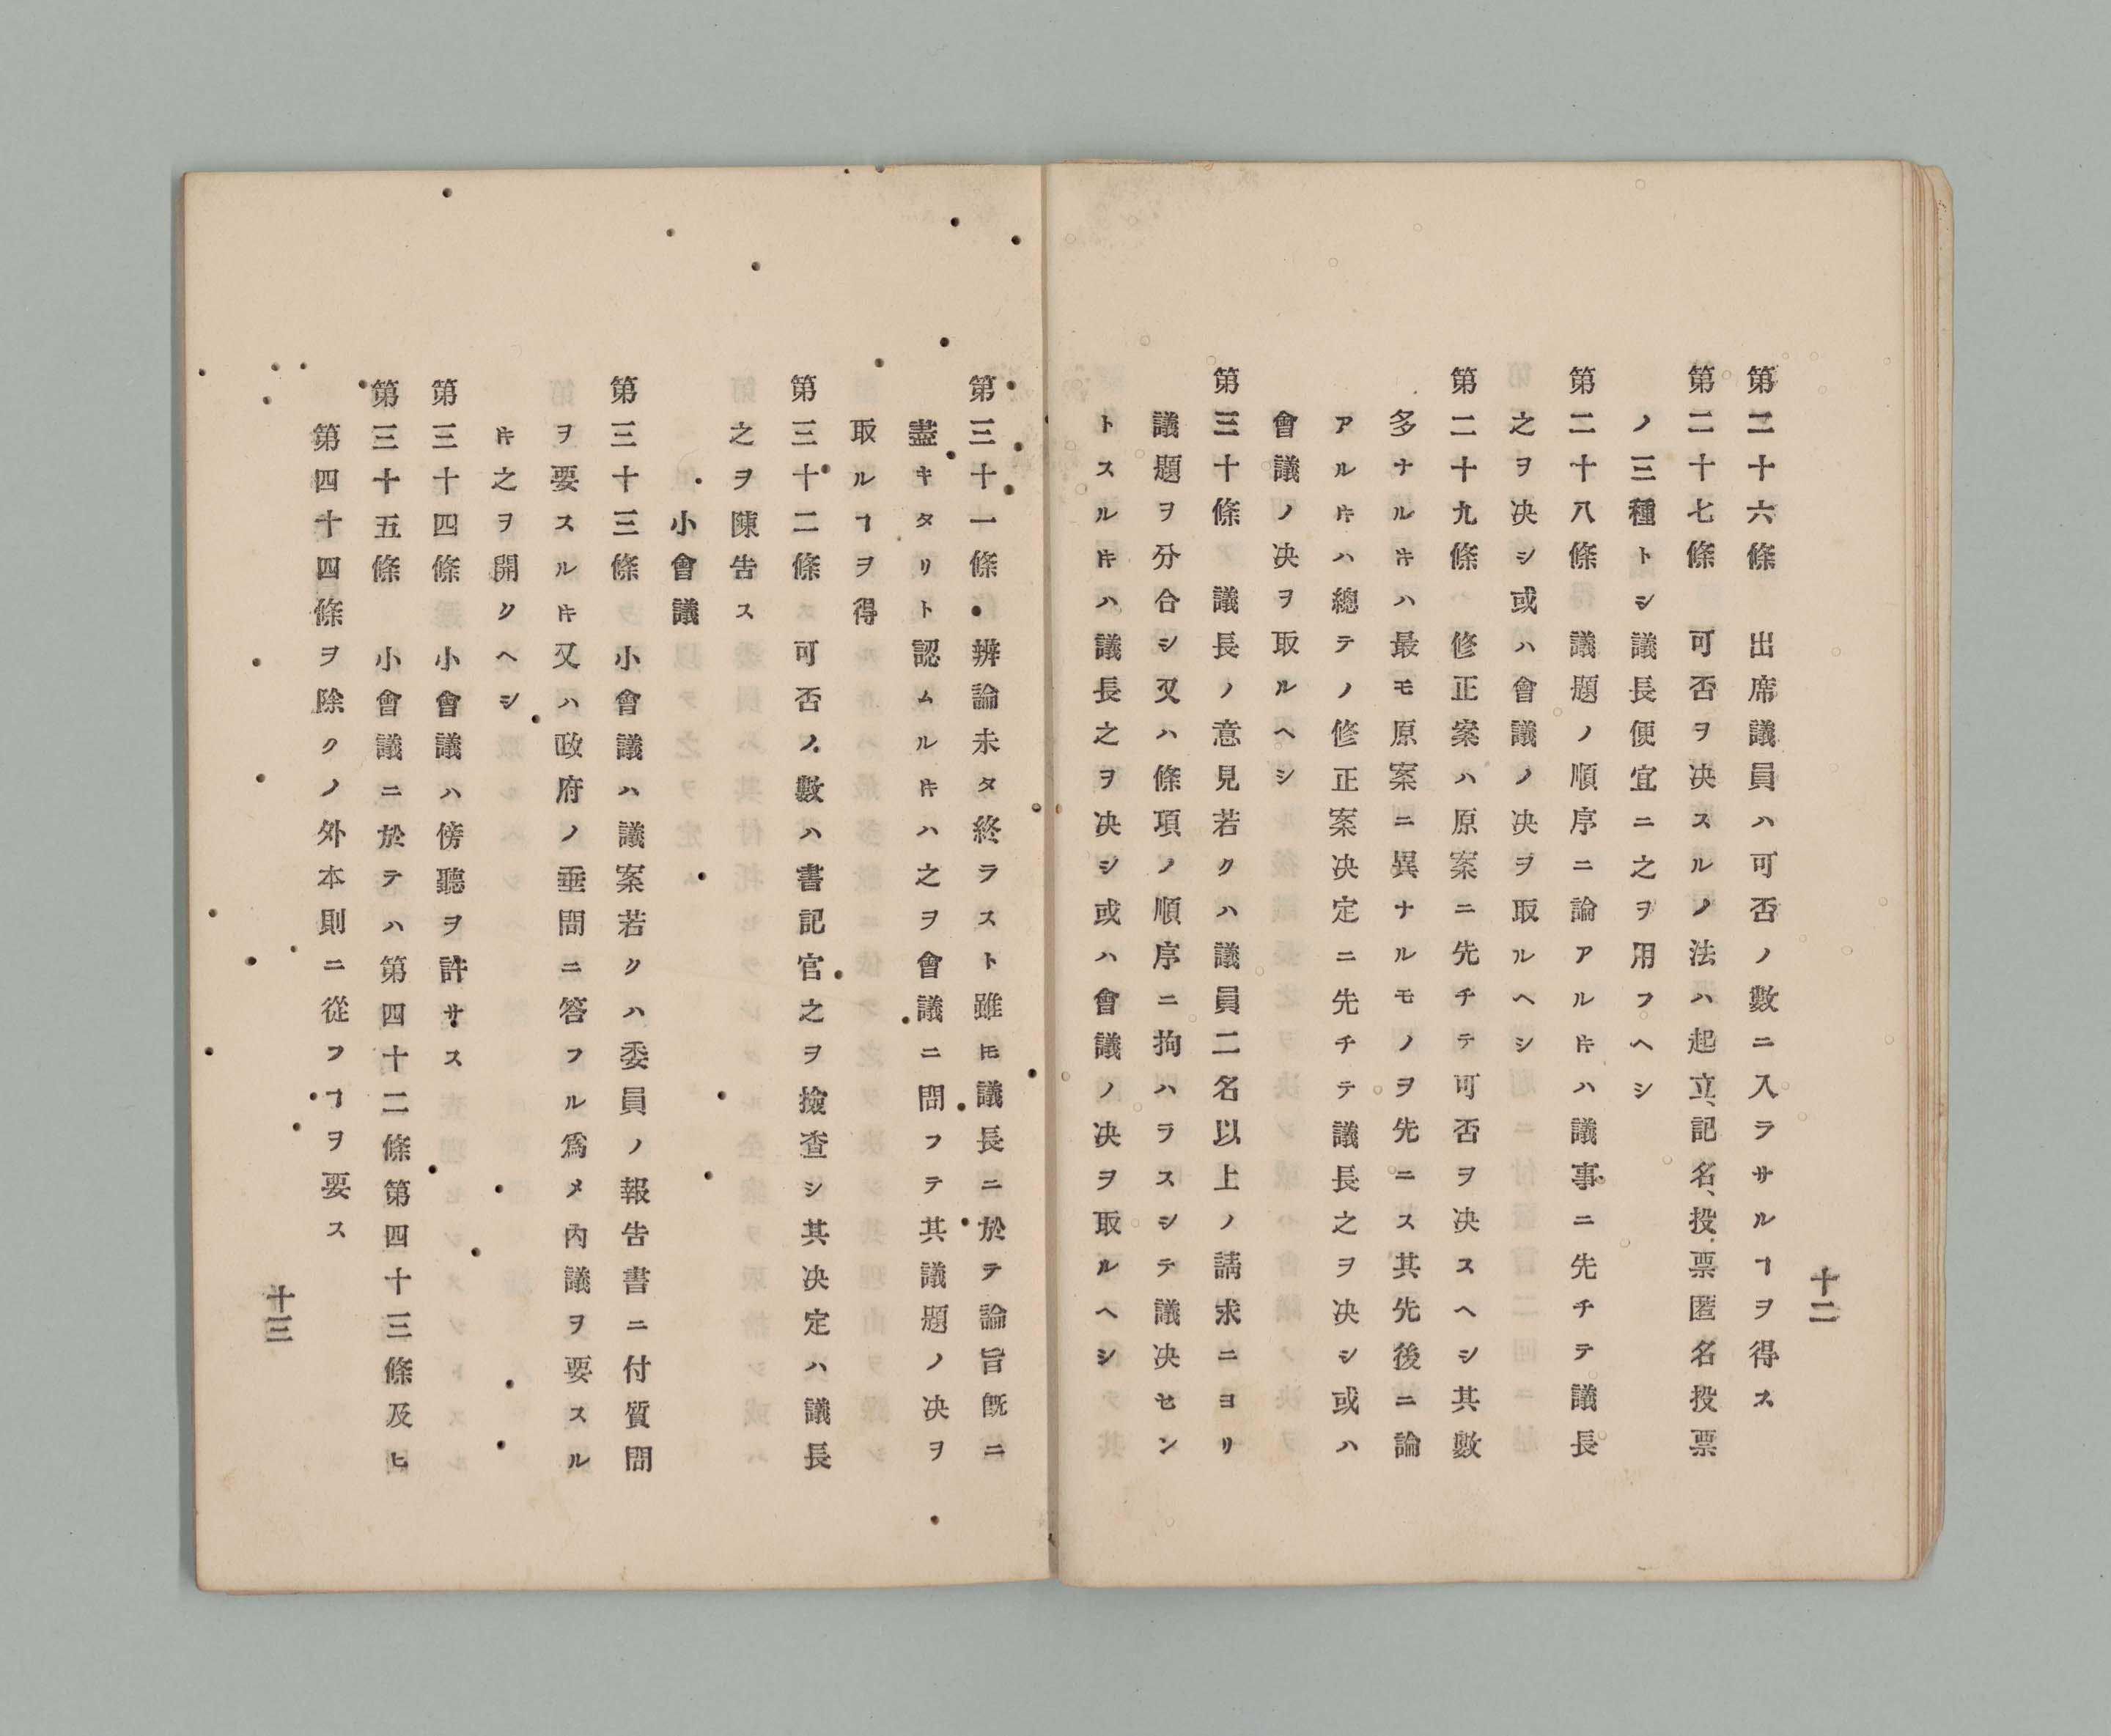 十二
第二十六條　出席議員ハ可否ノ數ニ入ラサルヿヲ得ス
第二十七條　可否ヲ决スルノ法ハ起立、記名、投票匿名投票
ノ三種トシ議長便宜ニ之ヲ用フヘシ
第二十八條　議題ノ順序ニ論アルキハ議事ニ先チテ議長
之ヲ决シ或ハ會議ノ决ヲ取ルヘシ
第二十九條　修正案ハ原案ニ先チテ可否ヲ决スヘシ其數
多ナルキハ最モ原案ニ異ナルモノヲ先ニス其先後ニ論
アルキハ總テノ修正案决定ニ先チテ議長之ヲ决シ或ハ
會議ノ决ヲ取ルヘシ
第三十條　議長ノ意見若クハ議員二名以上ノ請求ニヨリ
議題ヲ分合シ又ハ條項ノ順序ニ拘ハラスシテ議决セン
トスルキハ議長之ヲ决シ或ハ會議ノ决ヲ取ルヘシ
第三十一條　辨論未タ終ラスト雖𪜈議長ニ於テ論旨既ニ
盡キタリト認ムルキハ之ヲ會議ニ問フテ其議題ノ决ヲ
取ルヿヲ得
第三十二條　可否ノ數ハ書記官之ヲ撿查シ其决定ハ議長
之ヲ陳告ス
小會議
第三十三條　小會議ハ議案若クハ委員ノ報告書ニ付質問
ヲ要スルキ又ハ政府ノ垂問ニ答フル爲メ內議ヲ要スル
キ之ヲ開クヘシ
第三十四條　小會議ハ傍聽ヲ許サス
第三十五條　小會議ニ於テハ第四十二條第四十三條及ヒ
第四十四條ヲ除クノ外本則ニ從フヿヲ要ス
十三